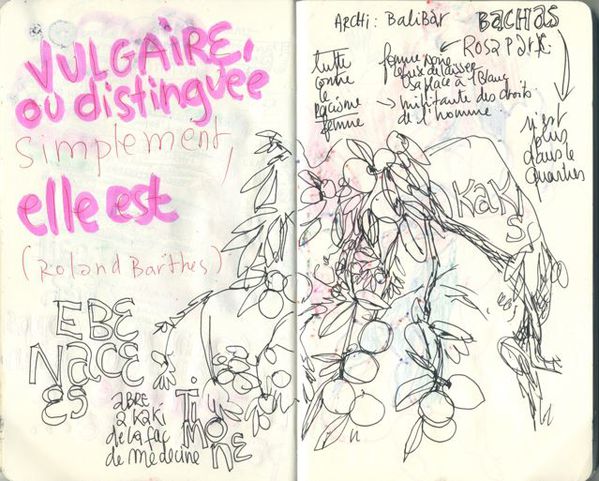 VULGAIRE,
ou distinguée
simplement,
elle est
(Roland Barthes)
EBE
NACE
ES
ABRE
à KAKI
de la fac
de médecine
TI
MO
NE
ARCHI : BaliBAr
BACHAS
Rosa Park.
lutte
contre
le
racisme
femme
femme noire
refus de laisser
sa place à 1 Blanc
militante des droits
de l'homme
n'est
plus
dans le
quartier
KAKI
S